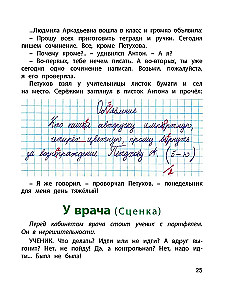 ...Людмила Аркадьевна вошла в класс и громко объявила:
– Прошу всех приготовить тетради и ручки. Сегодня
пишем сочинение. Все, кроме Петухова.
– Кроме почему?.. – удивился Антон. – А я?
– Во-первых, тебе нечем писать. А во-вторых, ты уже
сегодня одно сочинение написал. Возьми, пожалуйста,
я его проверила.
Петухов взял у учительницы листок бумаги и сел
на место. Серёжкин заглянул в листок Антона и прочёл:
Объявление
Кто нашёл авторучку импортную,
очерк цветную, прошу вернуть
за вознаграждение. Петухову А. (5–ю)
– Я же говорил, – проворчал Петухов, – понедельник
для меня день тяжёлый!
У врача (Сценка)
Перед кабинетом врача стоит ученик с портфелем.
Он в нерешительности.
УЧЕНИК. Что делать? Идти или не идти? А вдруг вы-
гонит? Нет, не пойду! Да, а контрольная? Нет, надо ид-
ти... Была не была!
25